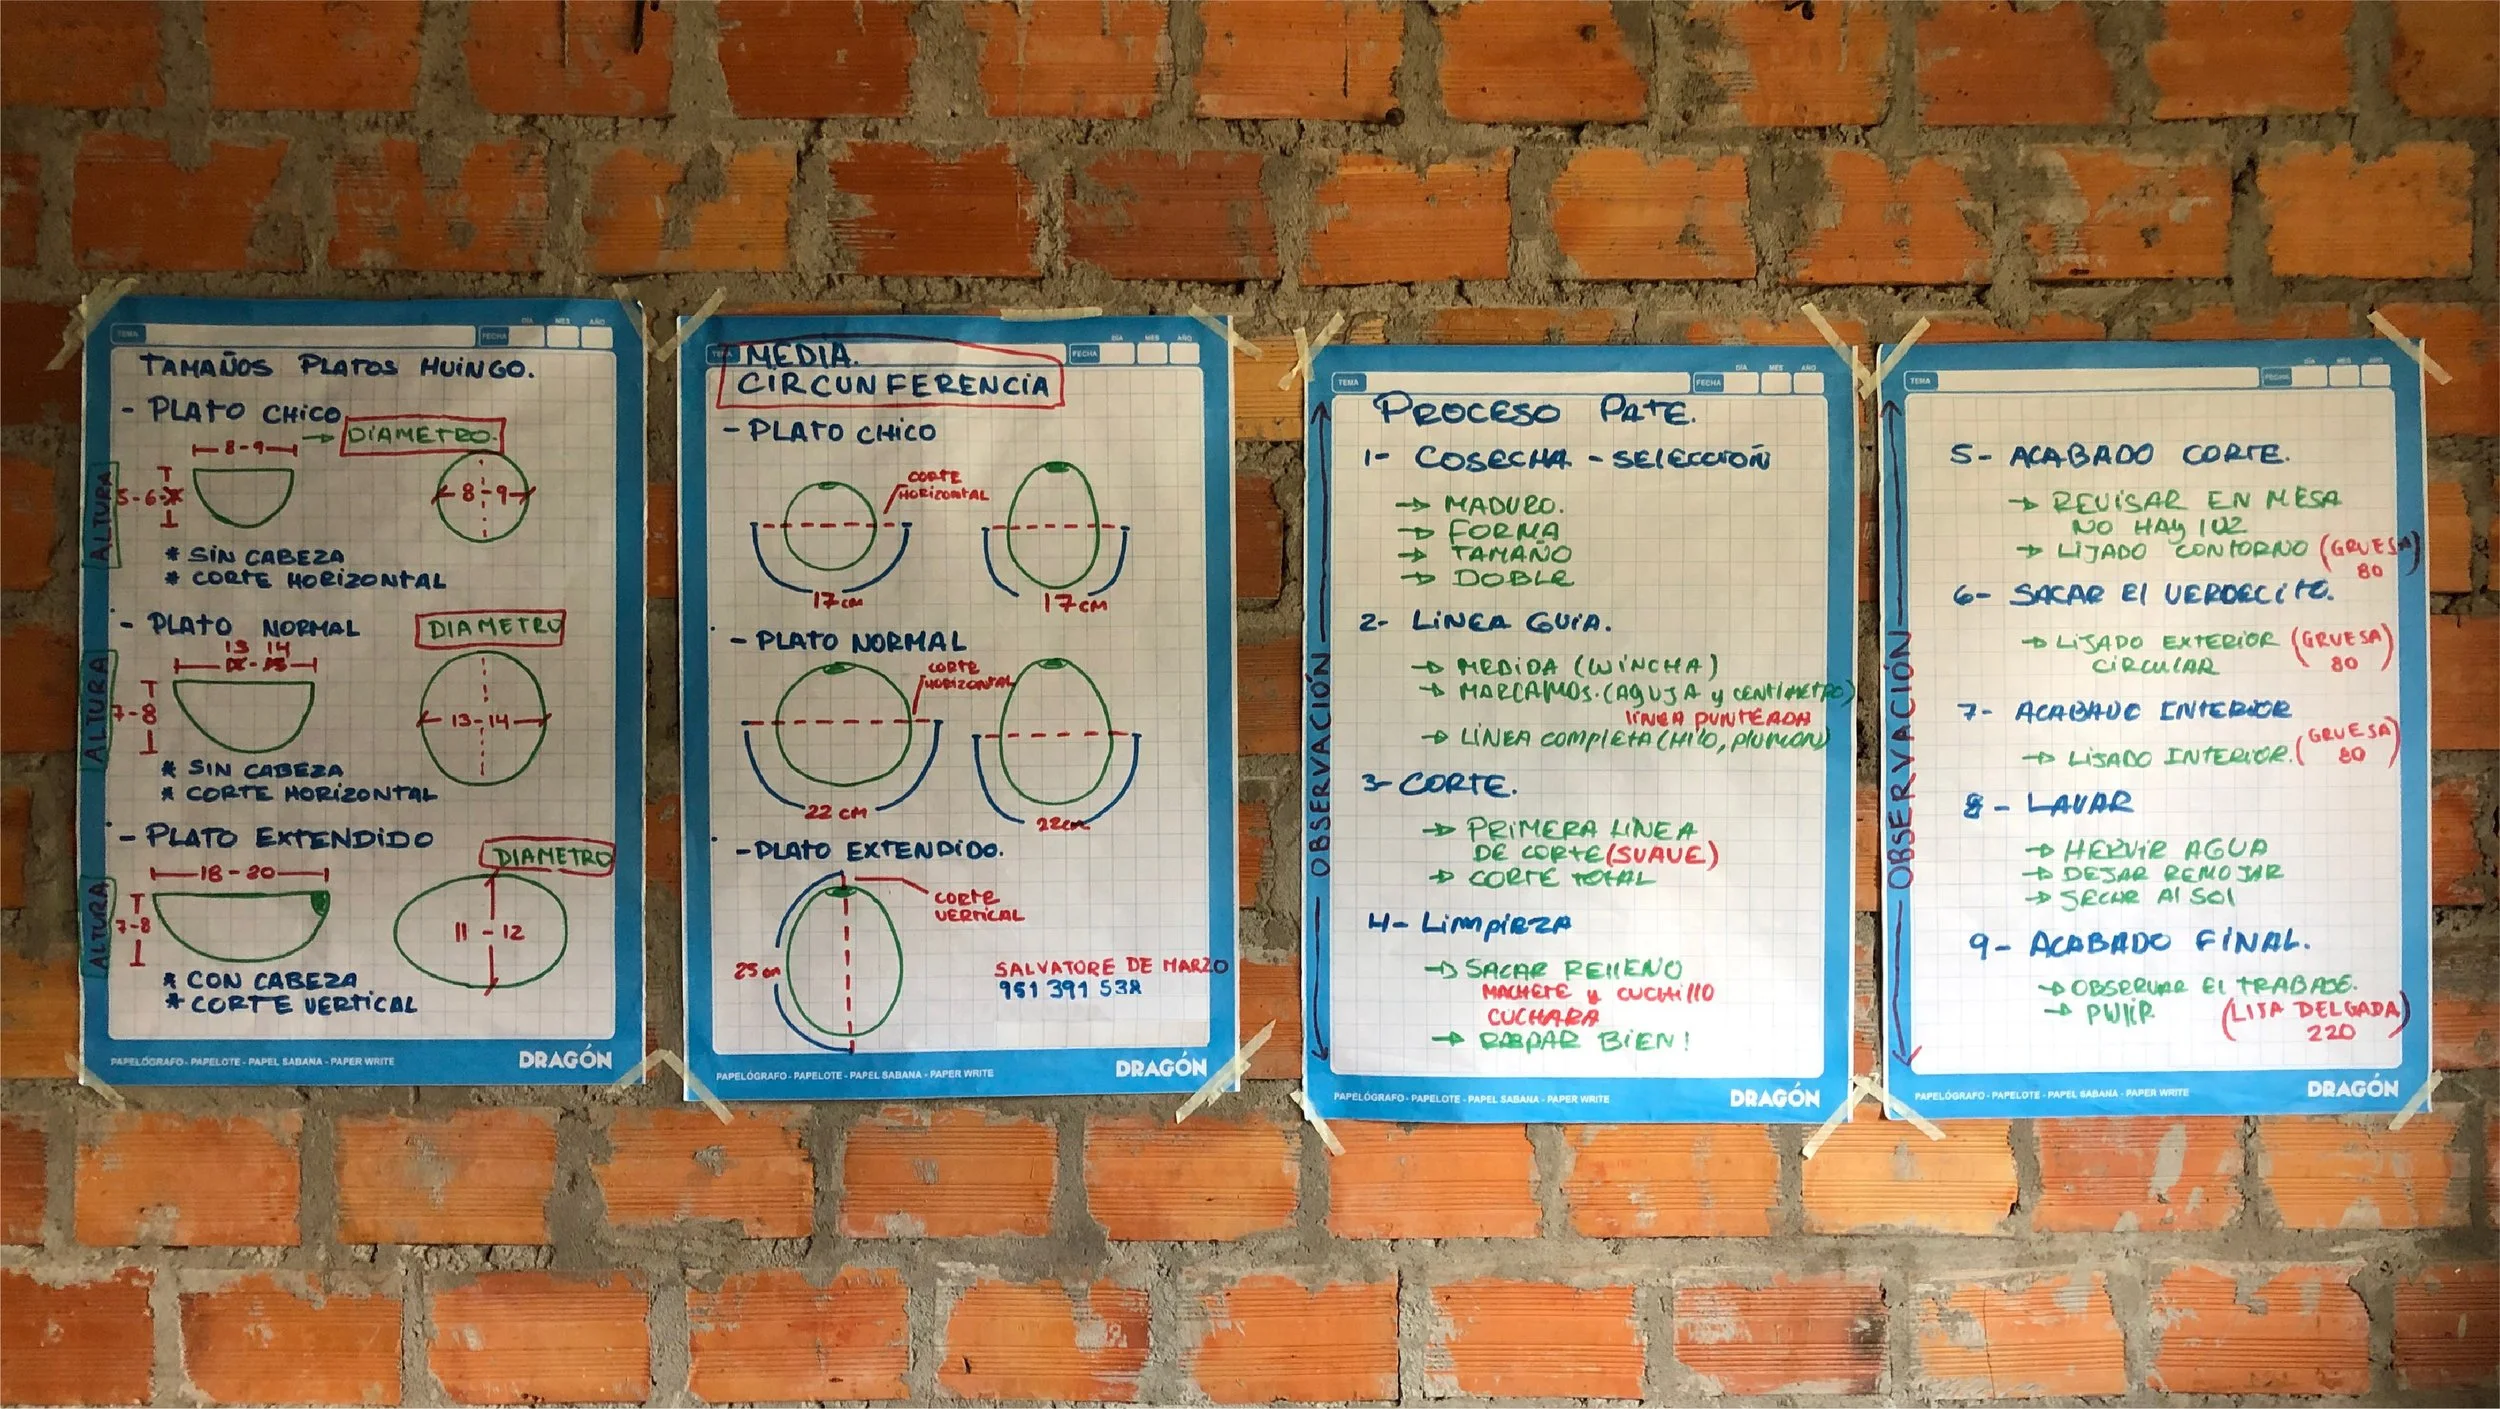 TEMA
FECHA
DÍA MES AÑO
TAMAÑOS PLATOS HUINGO.
- PLATO CHICO
8-9 → DIAMETRO.
ALTURA
5-6
8-9
* SIN CABEZA
* CORTE HORIZONTAL
- PLATO NORMAL
DIAMETRO
13 14
ALTURA
7-8
13-14
* SIN CABEZA
* CORTE HORIZONTAL
- PLATO EXTENDIDO
DIAMETRO
18-20
ALTURA
7-8
11-12
* CON CABEZA
* CORTE VERTICAL
PAPELÓGRAFO - PAPELOTE - PAPEL SABANA - PAPER WRITE
DRAGÓN
TEMA
FECHA
DÍA MES AÑO
MEDIA.
CIRCUNFERENCIA
- PLATO CHICO
CORTE
HORIZONTAL
17cm
17cm
- PLATO NORMAL
CORTE
HORIZONTAL
22 cm
22cm
- PLATO EXTENDIDO.
CORTE
VERTICAL
25cm
SALVATORE DE MARZO
951 391 538
PAPELÓGRAFO - PAPELOTE - PAPEL SABANA - PAPER WRITE
DRAGÓN
TEMA
FECHA
DÍA MES AÑO
OBSERVACIÓN
PROCESO PATE.
1- COSECHA - SELECCIOÑ
→ MADURO.
→ FORMA
→ TAMAÑO
→ DOBLE
2- LINEA GUIA.
→ MEDIDA (WINCHA)
→ MARCAMOS. (AGUJA y CENTIMETRO)
LÍNEA PUNTEADA
→ LÍNEA COMPLETA (HILO, PLUMON)
3- CORTE.
→ PRIMERA LINEA
DE CORTE (SUAVE)
→ CORTE TOTAL
4- LIMPIEZA
→ SACAR RELLENO
MACHETE y CUCHILLO
CUCHARA
→ RASPAR BIEN!
PAPELÓGRAFO - PAPELOTE - PAPEL SABANA - PAPER WRITE
DRAGÓN
TEMA
FECHA
DÍA MES AÑO
OBSERVACIÓN
5- ACABADO CORTE.
→ REVISAR EN MESA
NO HAY LUZ
→ LIJADO CONTORNO (GRUESA)
80
6- SACAR El VERDECITO.
→ LIJADO EXTERIOR (GRUESA)
CIRCULAR 80
7- ACABADO INTERIOR
→ LIJADO INTERIOR. (GRUESA)
80
8- LAVAR
→ HERVIR AGUA
→ DEJAR REMOJAR
→ SECAR Al SOl
9- ACABADO FINAL.
→ OBSERVAR El TRABAJE.
→ PULIR (LIJA DELGADA)
220
PAPELÓGRAFO - PAPELOTE - PAPEL SABANA - PAPER WRITE
DRAGÓN